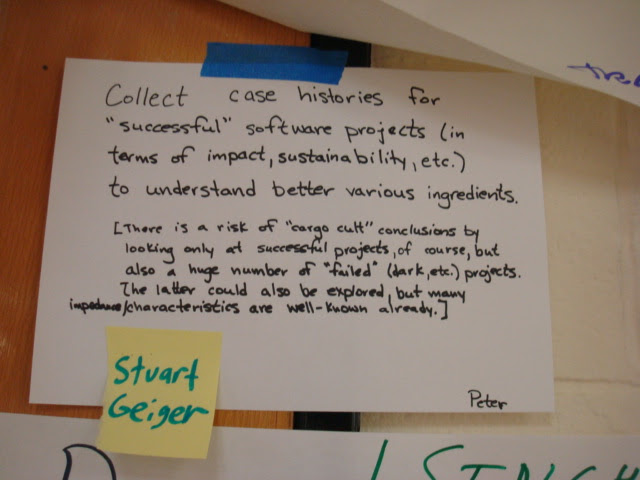 Collect case histories for
"successful" software projects (in
terms of impact, sustainability, etc.)
to understand better various ingredients.
[There is a risk of "cargo cult" conclusions by
looking only at successful projects, of course, but
also a huge number of "failed" (dark, etc.) projects.
The latter could also be explored, but many
/characteristics are well-known already.]
Stuart
Geiger
Peter